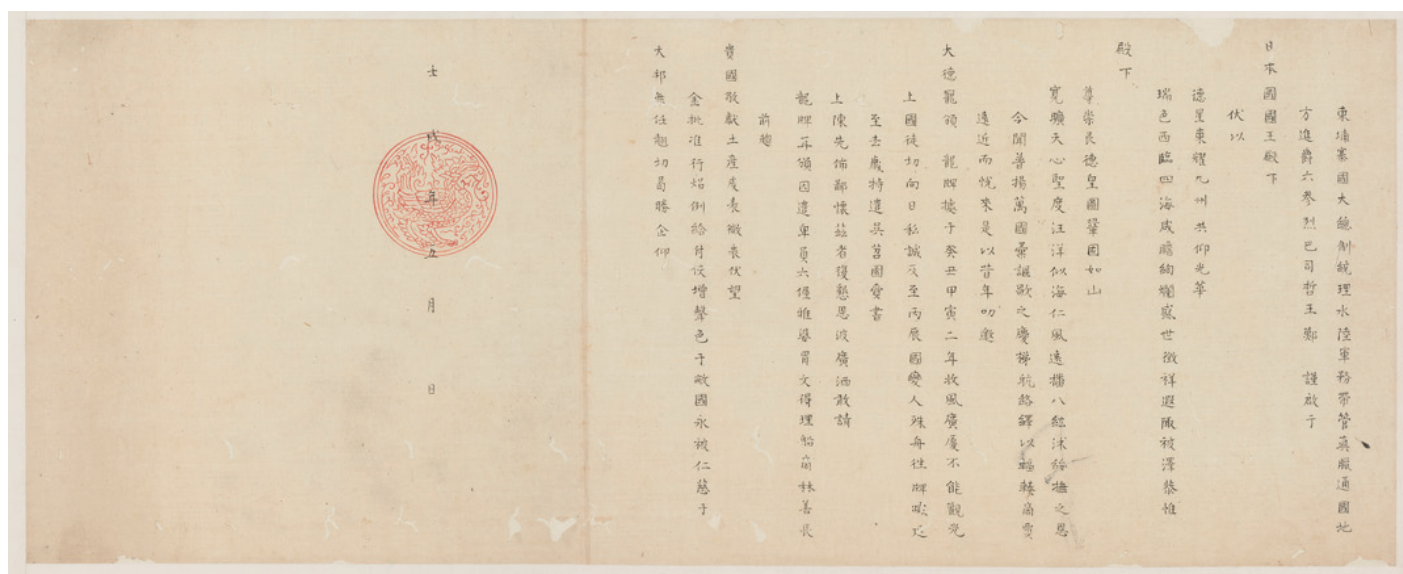 柬埔寨國大總制統理水陸軍務帶管真臘通國地
方進爵六參烈巴司哲王鄭 謹啟于
日本國國王殿下
伏以
德星東耀九州共仰光華
瑞色西臨四海咸瞻絢爛盛世徵祥遐陬被澤恭惟
殿下
尊崇長德皇圖鞏固如山
寬曠天心聖度汪洋似海仁風遠播八紘沭撫之恩
今聞普揚萬國彙謳歌之慶梯航絡繹以輻輳商賈
遠近而悅來是以昔年叨邀
大德寵頒 龍牌據于癸丑甲寅二年收風廣廈不能觀光
上國徒切向日私誠及至丙辰國變人殊舟往牌
至去歲特遣吳園賫書
上陳先佈鄙懷茲者復懇恩波廣洒敢請
龍牌再頒因遣卑員六僅雅冒文得理船商林善長
前趨
貴國敬獻土產虔表微衷伏望
金批准行炤例給付增聲色于敝國永被仁慈于
大邦無任翹切曷勝企仰
壬戌年五月 日